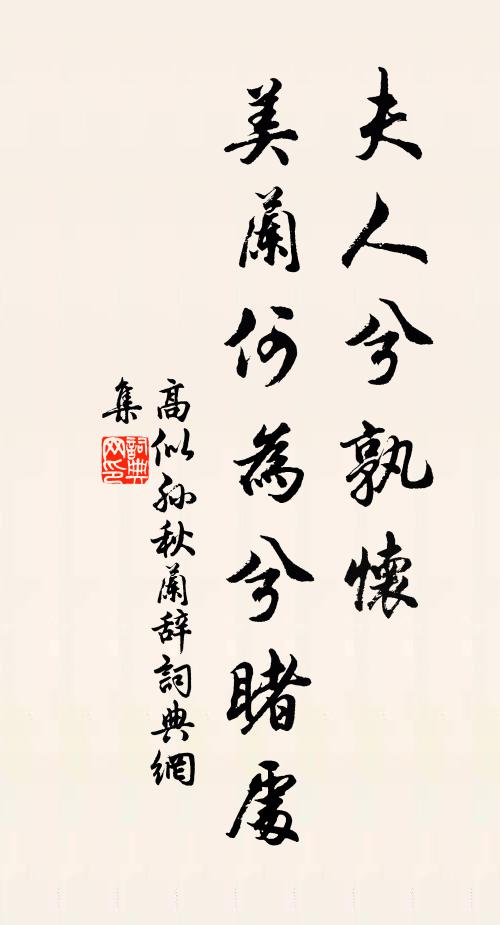 夫人兮孰懷
美蘭何為兮睹處
高似孫秋蘭辞詞典網
集
詞典
网印